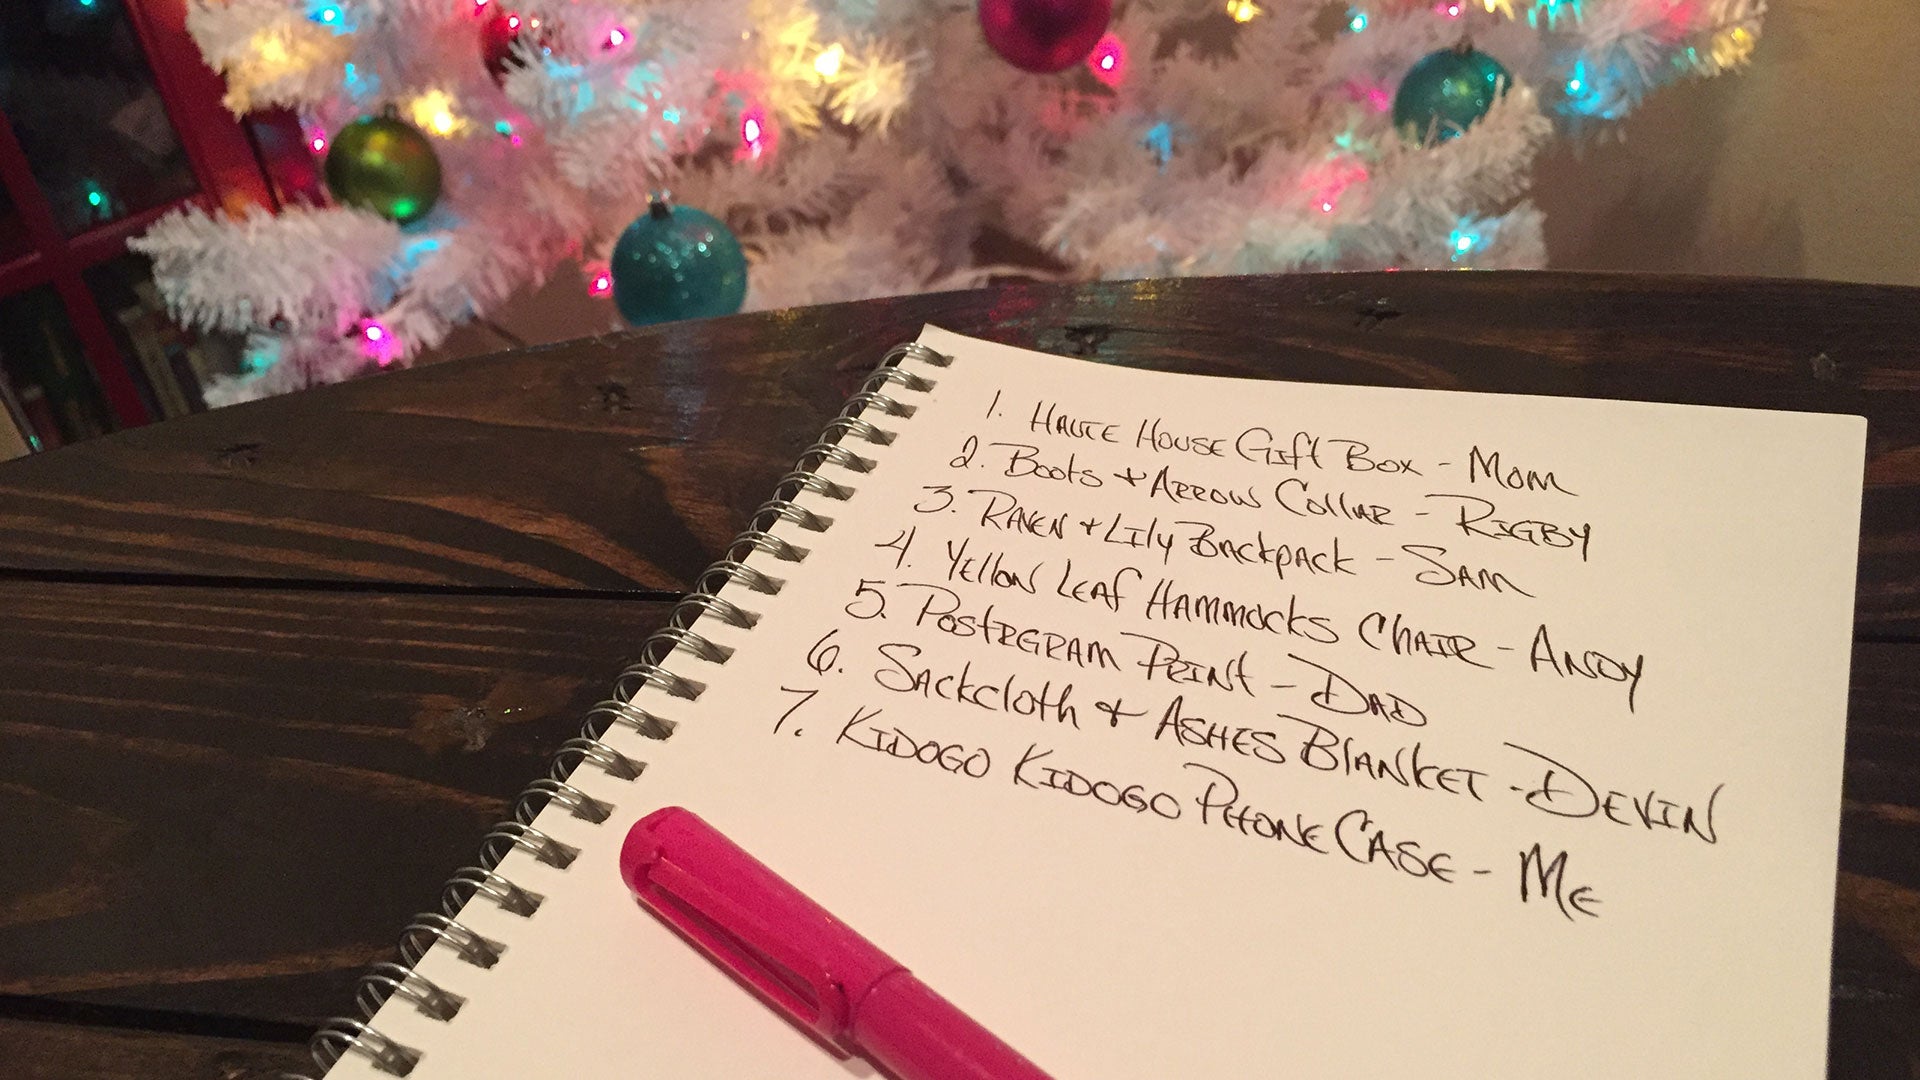 1. Haute House Gift Box - Mom
2. Boots + Arrow Collar - Rigby
3. Raven + Lily Backpack - Sam
4. Yellow Leaf Hammocks Chair - Andy
5. Postagram Print - Dad
6. Sackcloth + Ashes Blanket - Devin
7. Kidogo Kidogo Phone Case - Me